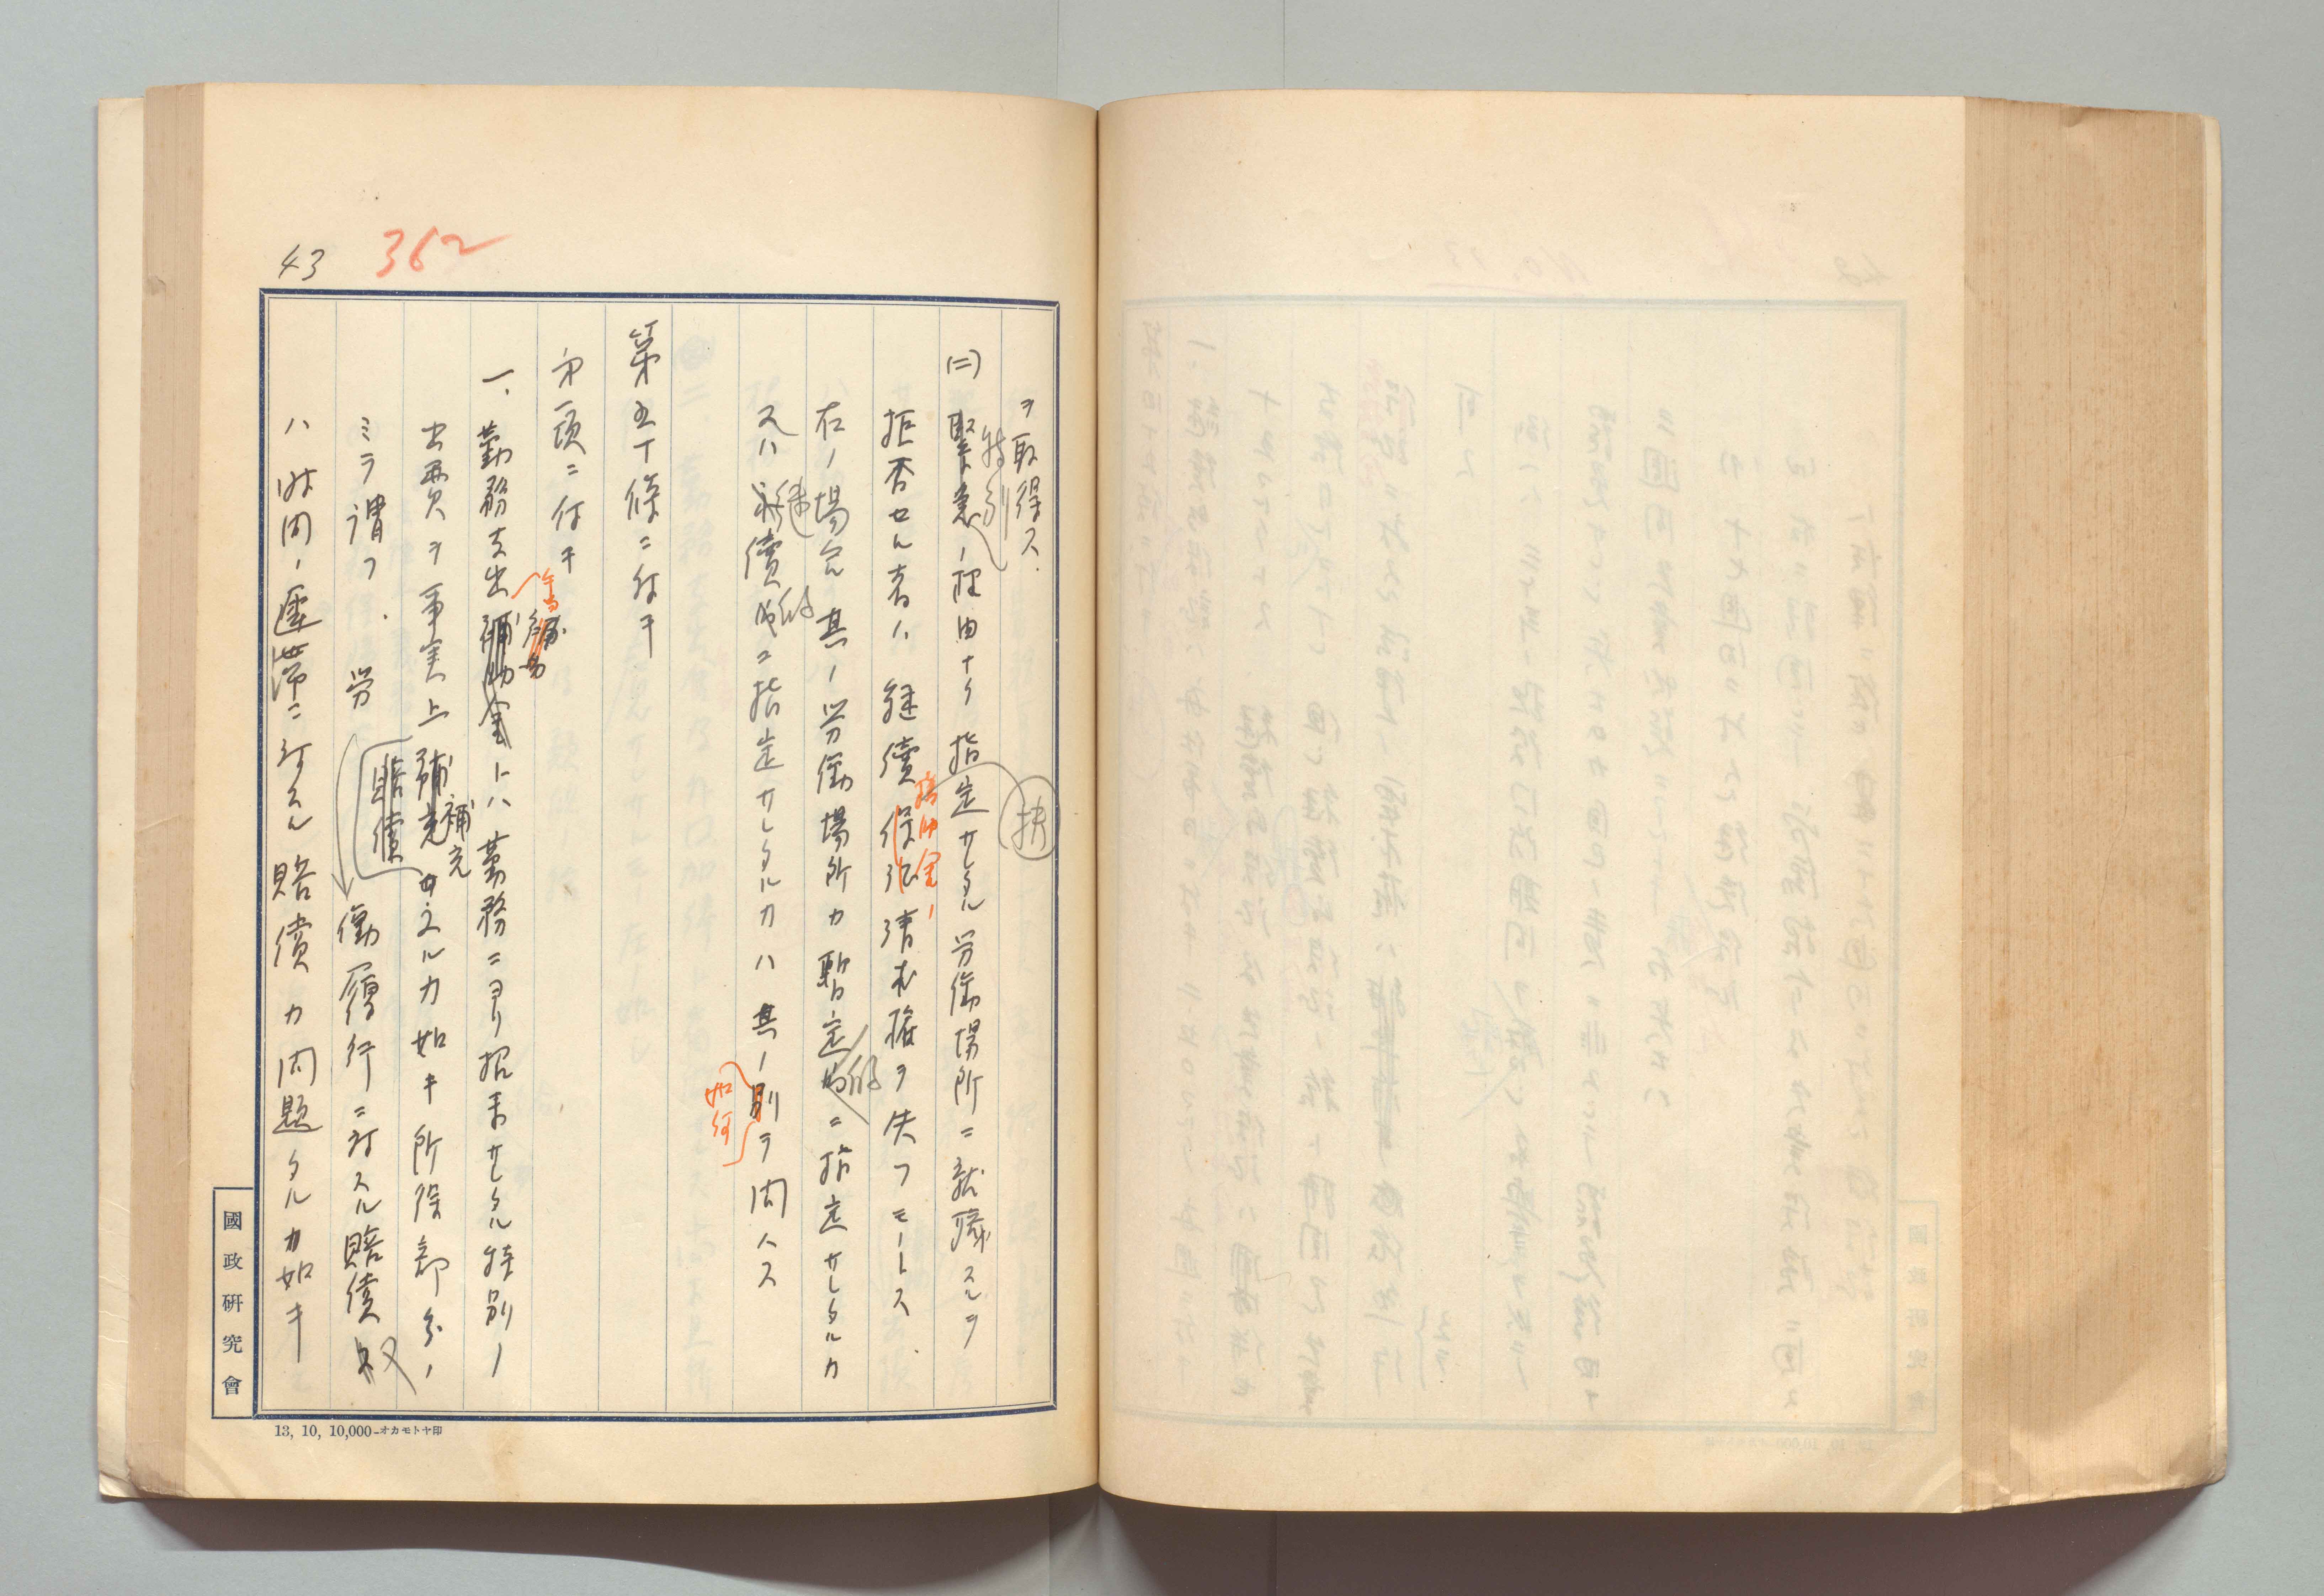 43
362
ヲ取得ス.
(二) 緊急ノ理由ナク指定サレタル労働場所ニ就職スルヲ
特別
拒否セル者ハ継続 請求権ヲ失フモノトス.
右ノ場合其ノ労働場所カ暫定的ニ指定サレタルカ
的
又ハ 続的ニ指定サレタルカハ其ノ別ヲ問ハス
継
的
如何
第五十條ニ付キ
第一項ニ付キ
一、勤務支出補助金トハ勤務ニヨリ招来サレタル特別ノ
出費ヲ事実上補充 カ如キ所得部分ノ
補充
賠償
ミヲ謂フ. 労働履行ニ対スル賠償又
ハ時間ノ遅滞ニ対スル賠償カ問題タルカ如キ
國政研究會
13, 10, 10,000—オカモトヤ印